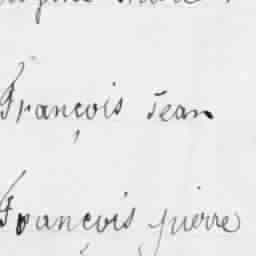 François Jean
François pierre